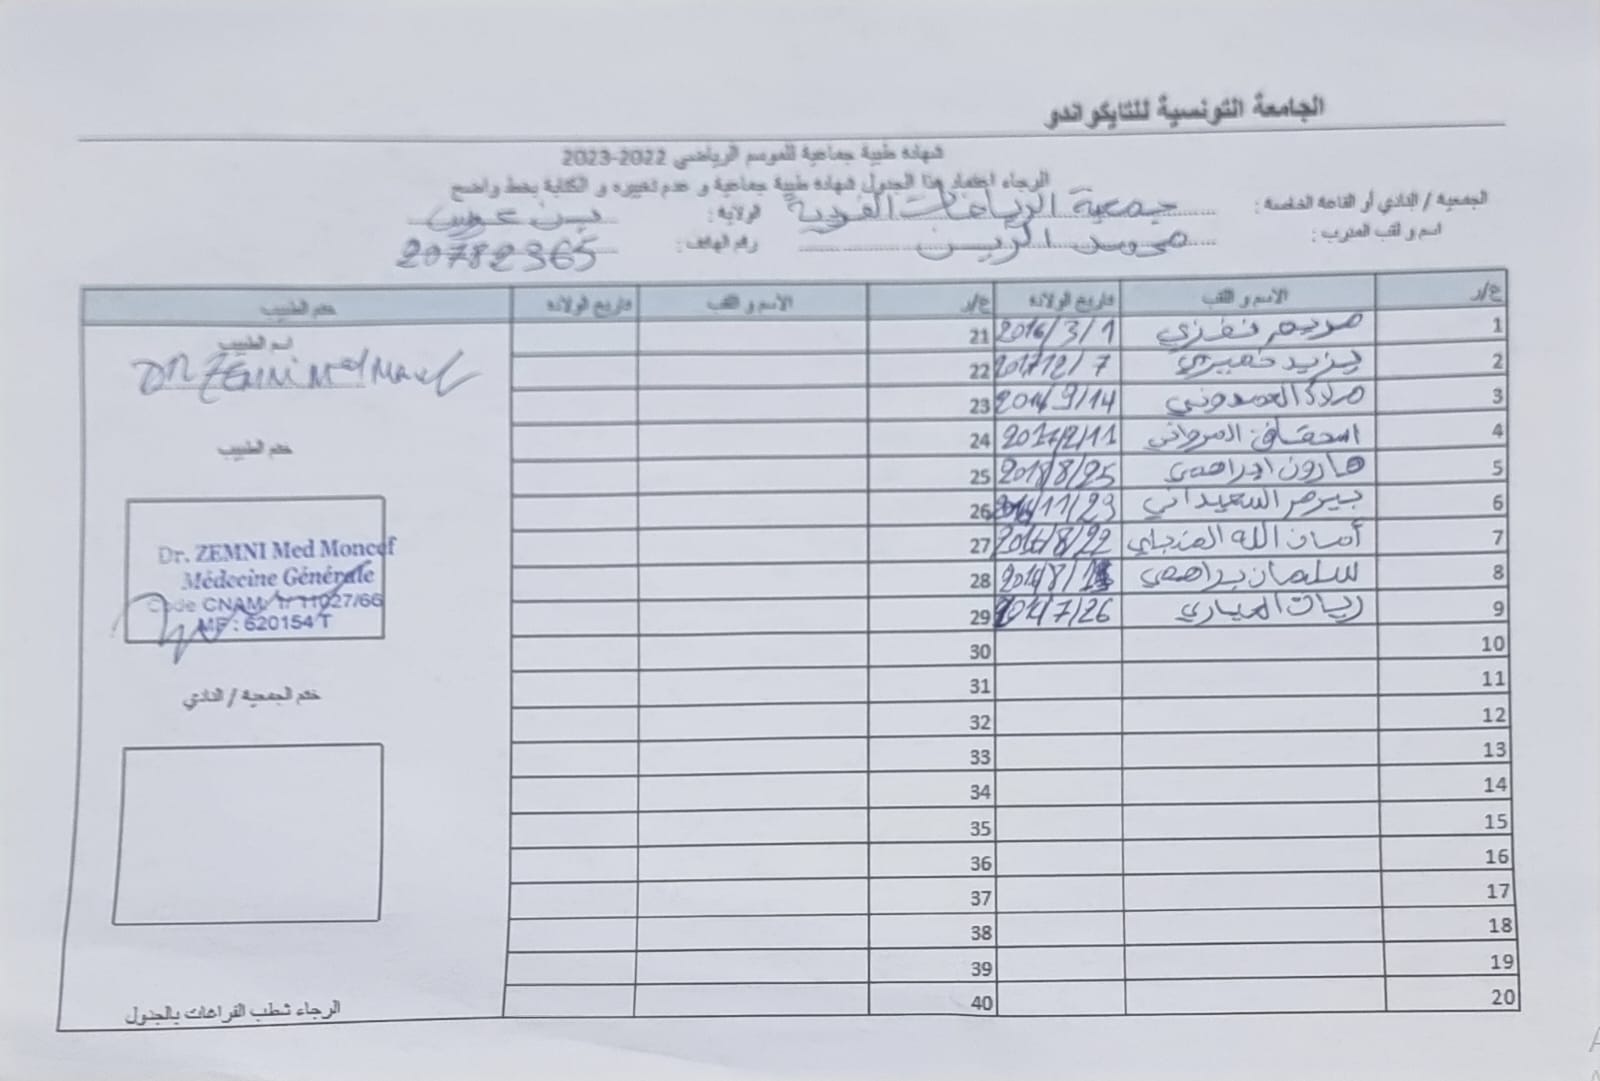 الجامعة التونسية للتايكواندو
شهادة طبية جماعية للموسم الرياضي 2022-2023
الرجاء اعتماد هذا الجدول شهادة طبية جماعية و عدم تغييره و الكتابة بخط واضح
الجمعية / النادي أو القاعة الخاصة : جمعية الرياضات الفردية الولاية : بن عروس
اسم و لقب المدرب : الزين رقم الهاتف : 20782365
ع/ر الاسم و اللقب تاريخ الولادة ع/ر الاسم و اللقب تاريخ الولادة ختم الطبيب
1 مريم نفزي 2016/3/1 21
2 يزيد خميري 2017/2/7 22
3 9/14 23
4 المرواني 2017/2/11 24
5 هارون ابراهمي 2018/8/25 25
6 بيرم السعيداني 11/23 26
7 أمان الله 8/22 27
8 سلمان براهمي 28
9 ريان العياري 7/26 29
10 30
11 31
12 32
13 33
14 34
15 35
16 36
17 37
18 38
19 39
20 40
اسم الطبيب
DR ZEMNI Med
ختم الطبيب
Dr. ZEMNI Med Moncef
Médecine Générale
Code CNAM: 1/ 11027/66
MF : 620154 T
ختم الجمعية / النادي
الرجاء شطب الفراغات بالجدول